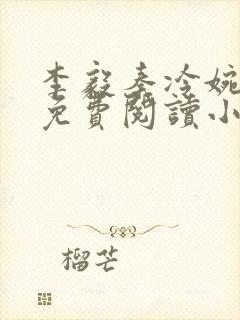 李毅秦冷婉
免費閱讀小
榴芒